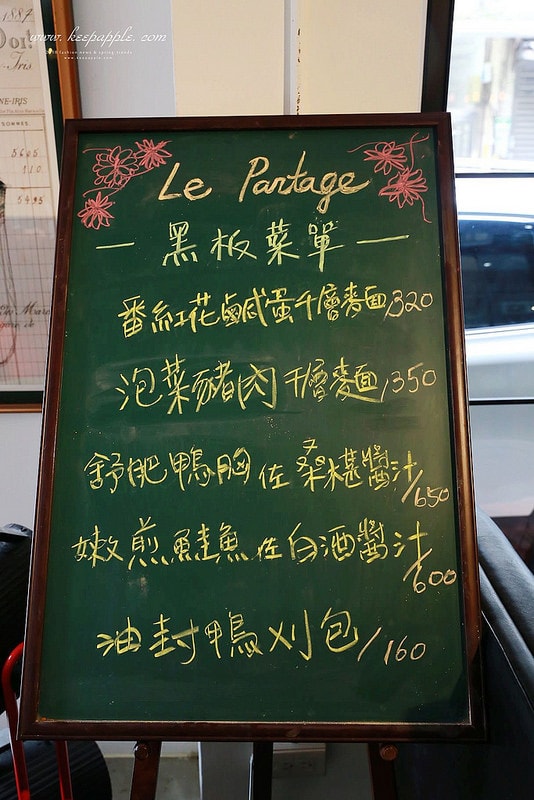 1887
www.keepapple.com
Le Partage
— 黑板菜單 —
番紅花鹹蛋千層麵/320
泡菜豬肉千層麵/350
舒肥鴨胸佐桑椹醬汁/650
嫩煎鮭魚佐白酒醬汁/600
油封鴨刈包/160